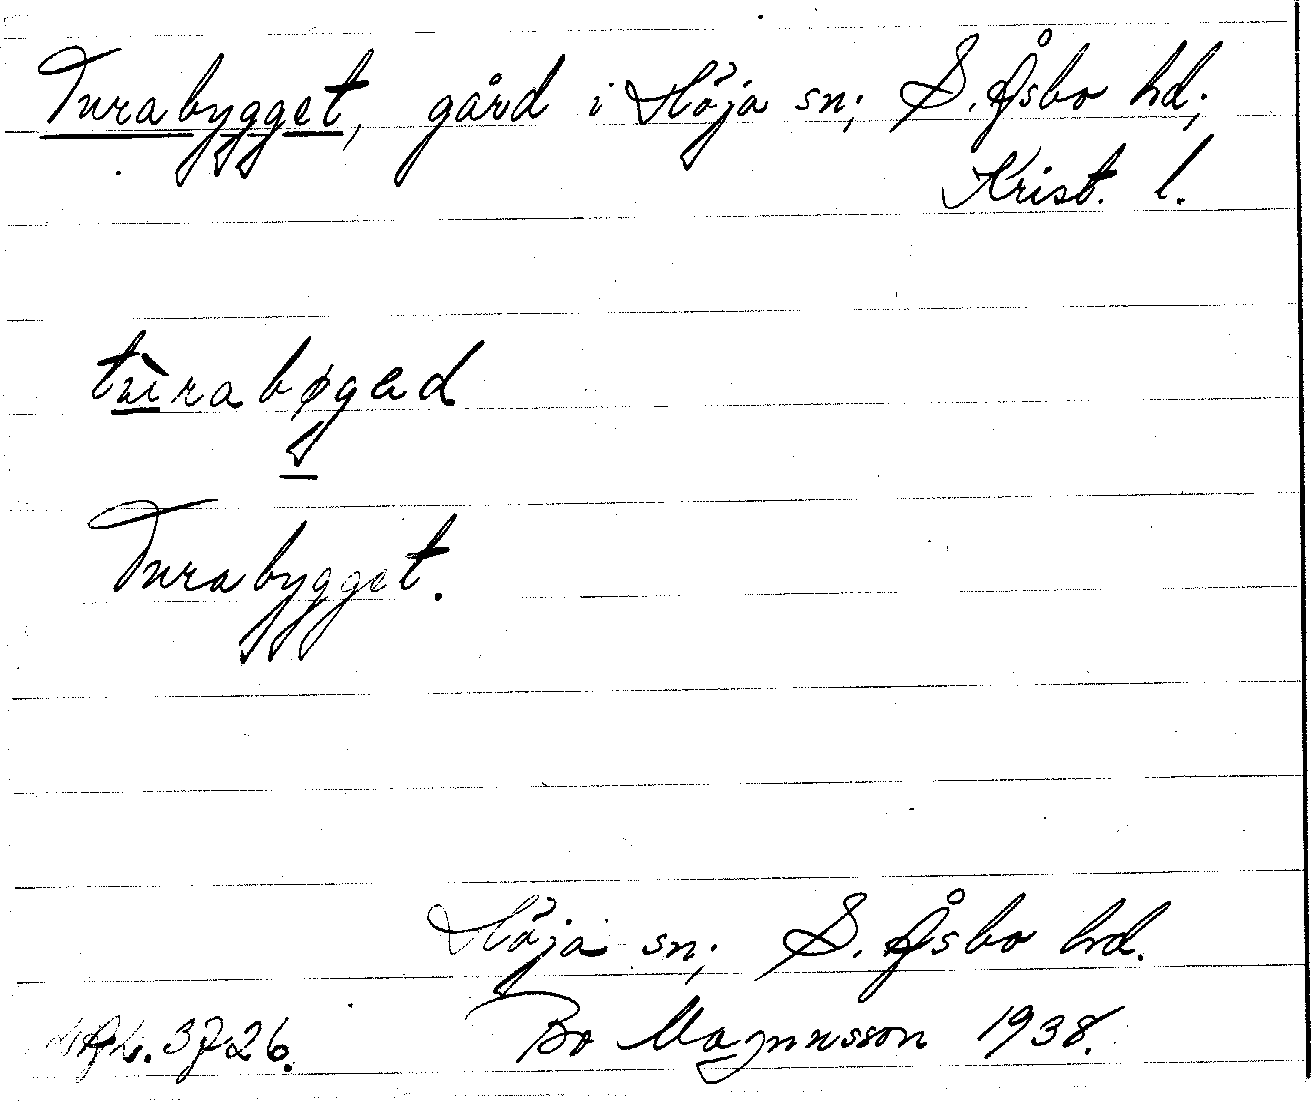 Turabygget, gård i Höja sn; S. Åsbo hd;
Krist. l.
tùrabøgad
Turabygget.
Höja sn; S. Åsbo hd.
Bo Magnusson 1938.